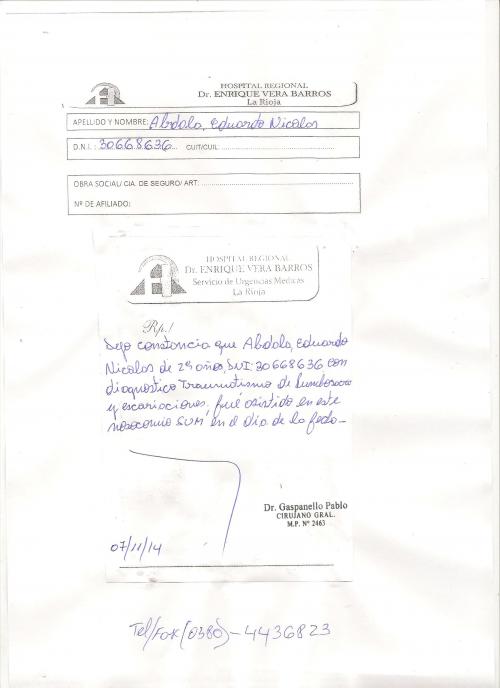 HOSPITAL REGIONAL
Dr. ENRIQUE VERA BARROS
La Rioja
APELLIDO Y NOMBRE: Abdala, Eduardo Nicolas
D.N.I. : 30668636... CUIT/CUIL: ..........................................
OBRA SOCIAL/ CIA. DE SEGURO/ ART: ..........................................
Nº DE AFILIADO:
HOSPITAL REGIONAL
Dr. ENRIQUE VERA BARROS
Servicio de Urgencias Medicas
La Rioja
Rp./
Dejo constancia que Abdala, Eduardo
Nicolas de 29 años, DNI: 30668636 con
diagnostico Traumatismo de
y escoriaciones, fué asistido en este
nosocomio SUM, en el día de la fecha_
Dr. Gaspanello Pablo
CIRUJANO GRAL.
M.P. Nº 2463
07/11/14
Tel/Fax (0380)-4436823